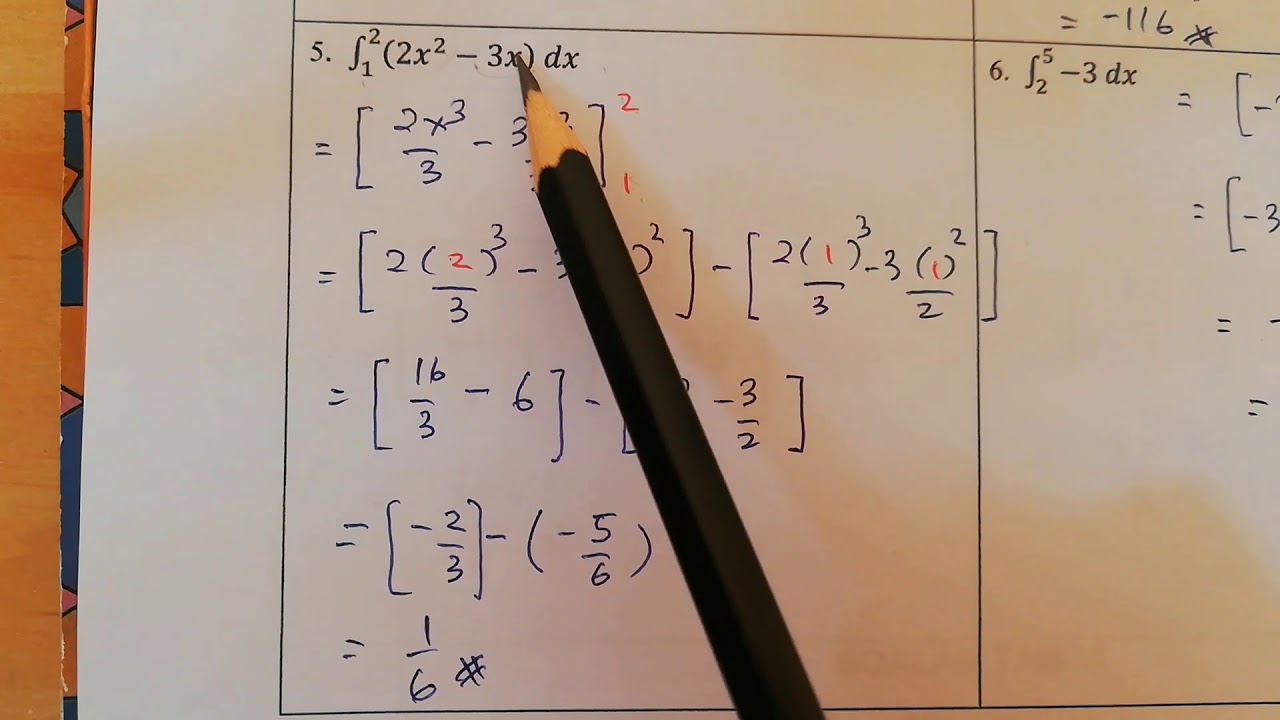 = -116 *
5. ∫₁² (2x² − 3x) dx
= [ 2x³/3 - 3 ]²₁
= [ 2(2)³/3 - 3 )² ] - [ 2(1)³/3 - 3(1)²/2 ]
= [ 16/3 - 6 ] - [ - 3/2 ]
= [ -2/3 ] - ( -5/6 )
= 1/6 *
6. ∫₂⁵ −3 dx
= [ -
= [ -3
= -
=